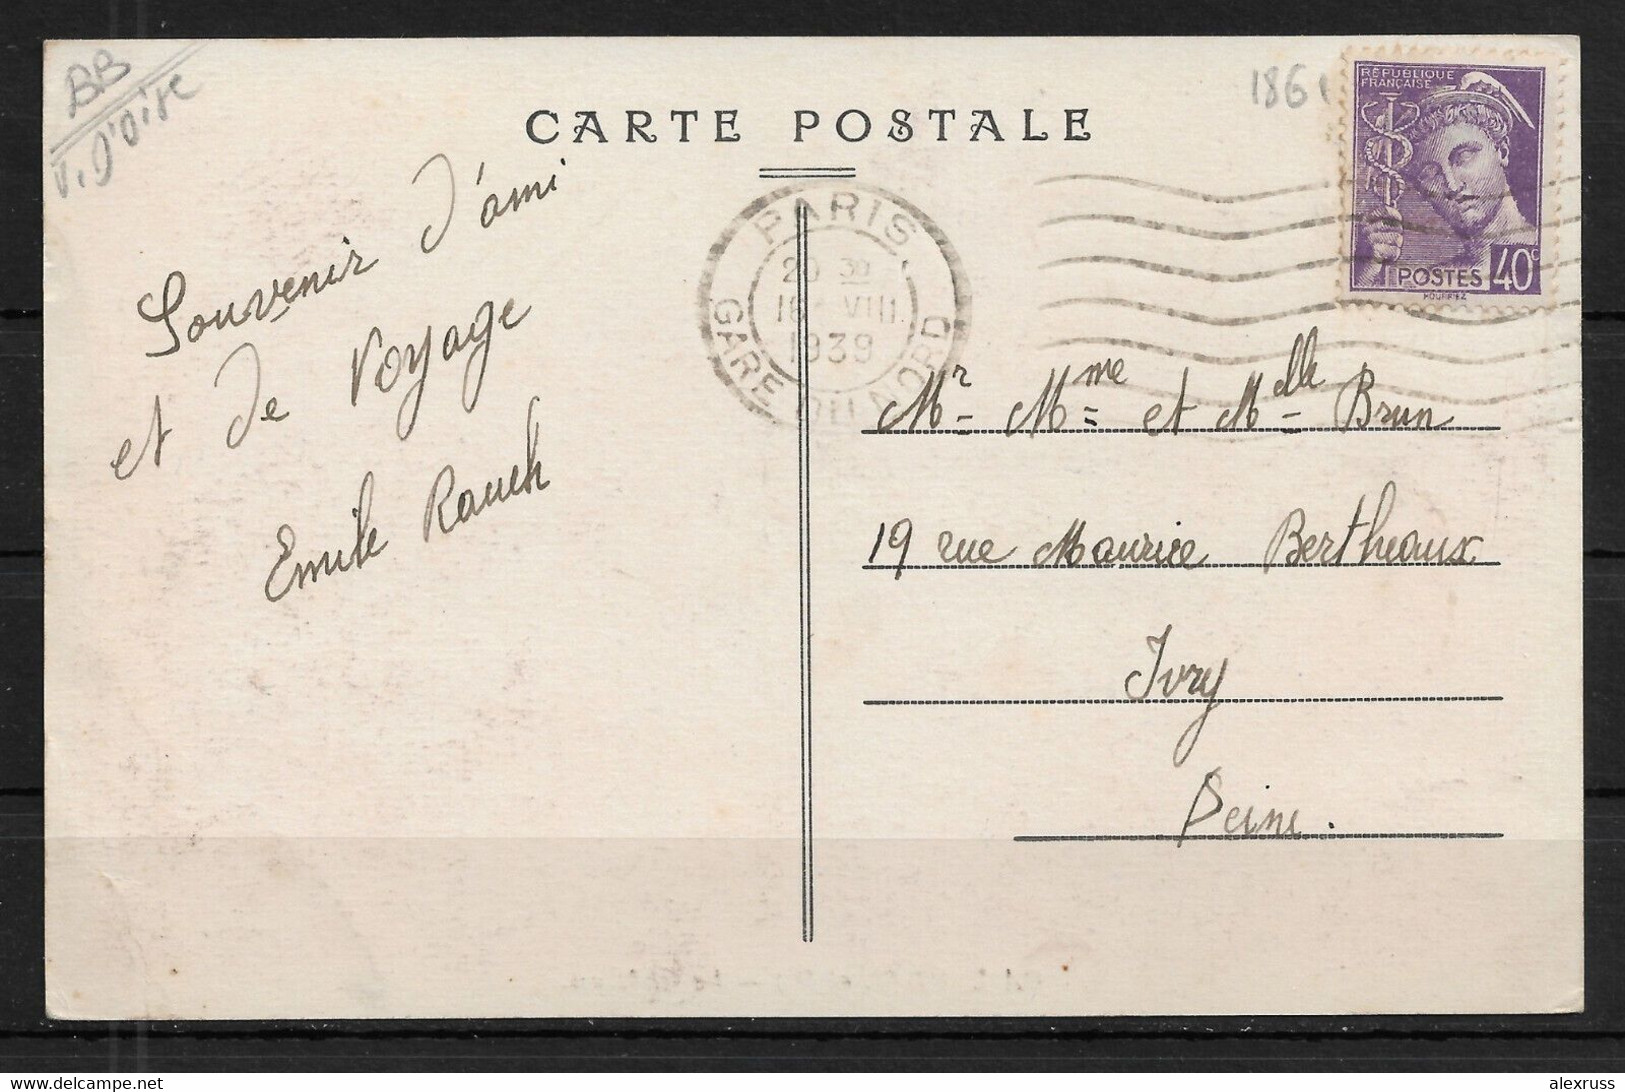 BB
V. d'Oise
CARTE POSTALE
1861
RÉPUBLIQUE
FRANÇAISE
POSTES 40c
HOURRIEZ
PARIS
20 30
VIII
1939
GARE DU NORD
Souvenir d'ami
et de Voyage
Emile Rauch
Mr - Mme et Mlle Brun
19 rue Maurice Bertheaux
Ivry
Seine.
alexruss